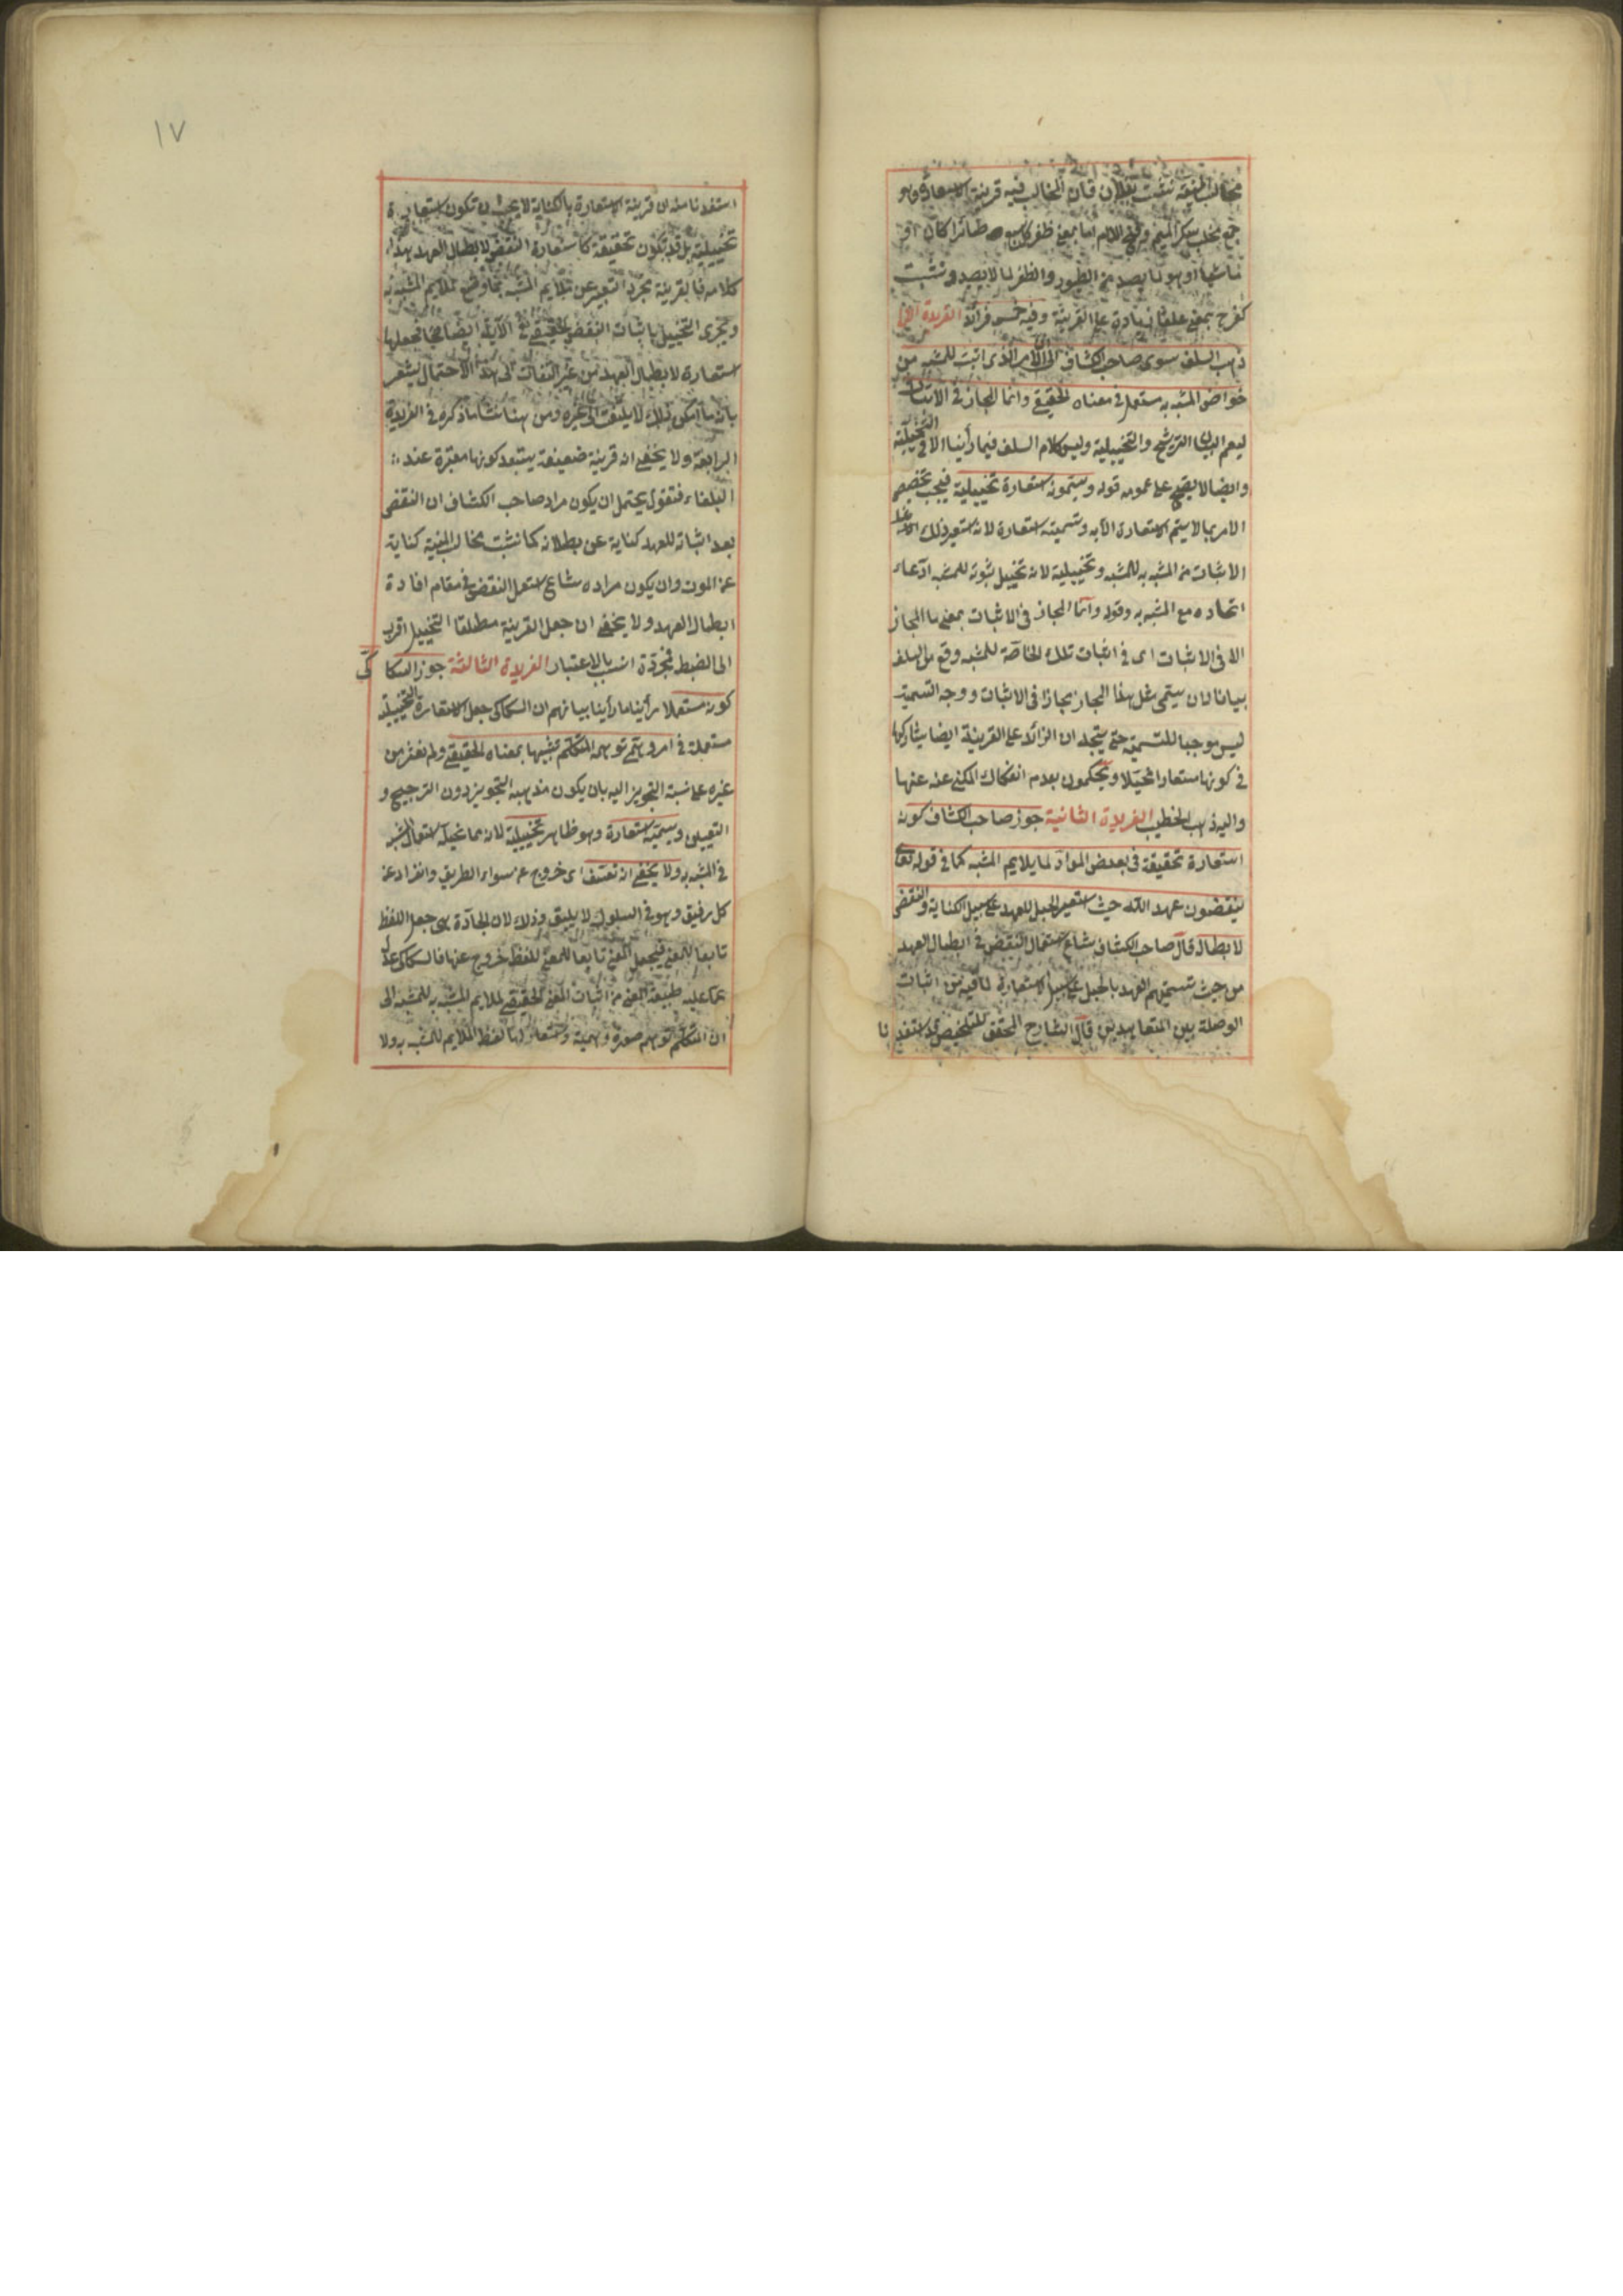 مخالب المنية نشبت بفلان فان المخالب فيه قرينة الاستعارة وهو
جمع مخلب بكسر الميم وفتح اللام اما بمعنى ظفر كل سبع طائرا كان او
ماشيا او هو لما يصيد من الطيور والظفر لما لا يصيد ونشبت
كفرح بمعنى علق زيادة على القرينة وفيه خمس فرائد الفريدة الاولى
ذهب السلف سوى صاحب الكشاف الى ان الامر الذى اثبت للمشبه من
خواص المشبه به مستعمل فى معناه الحقيقى وانما المجاز فى الاثبات
ليعم البيان الترشيح والتخييلية وليس كلام السلف فيما رأينا الا فى التخييلية
وايضا لا يصح على عمومه قوله ويسمونه استعارة تخييلية فيجب تخصيص
الامر بما لا يتم الاستعارة الا به وتسميته استعارة لانه استعير ذلك
الاثبات من المشبه به للمشبه وتخييلية لانه تخييل ثبوته للمشبه ادعاء
اتحاده مع المشبه به وقوله وانما المجاز فى الاثبات بمعنى ما المجاز
الا فى الاثبات اى فى اثبات تلك الخاصة للمشبه وقع من السلف
بيانا لان يسمى مثل هذا المجاز مجازا فى الاثبات ووجه التسمية
ليس موجبا للتسمية حتى يتجه ان الزائد على القرينة ايضا يشاركها
فى كونها مستعارا مخيلا ويحكمون بعدم انفكاك المكنى عنه عنها
واليه ذهب الخطيب الفريدة الثانية جوز صاحب الكشاف كونه
استعارة تحقيقية فى بعض المواد لما يلايم المشبه كما فى قوله تعالى
ينقضون عهد الله حيث استعير الحبل للعهد على سبيل الكناية والنقض
لابطاله قال صاحب الكشاف شاع استعمال النقض فى ابطال العهد
من حيث تسميتهم العهد بالحبل على سبيل الاستعارة لما فيه من اثبات
الوصلة بين المتعاهدين قال الشارح المحقق للتلخيص قد استفدنا
١٧
استفدنا منه ان قرينة الاستعارة بالكناية لا يجب ان تكون استعارة
تخييلية بل قد تكون تحقيقية كاستعارة النقض لابطال العهد هذا
كلامه فالقرينة مجرد التعبير عن ملايم المشبه بما وضع لملايم المشبه به
ويجرى التخييل باثبات النقض الحقيقى فى الآية ايضا فجعلها
استعارة لابطال العهد من غير التفات الى هذا الاحتمال يشعر
بانه ما امكن ذلك لا يلتفت الى غيره ومن هنا نشأ ما ذكره فى الفريدة
الرابعة ولا يخفى انه قرينة ضعيفة يستبعد كونها معتبرة عند
البلغاء فنقول يحتمل ان يكون مراد صاحب الكشاف ان النقض
بعد اثباته للعهد كناية عن بطلانه كما نشبت مخالب المنية كناية
عن الموت وان يكون مراده شاع استعمال النقض فى مقام افادة
ابطال العهد ولا يخفى ان جعل القرينة مطلقا التخييل اقرب
الى الضبط انسب بالاعتبار الفريدة الثالثة جوز السكاكى
كونه مستعملا رأينا ما رأينا بيانهم ان السكاكى جعل الاستعارة التخييلية
مستعملة فى امر وهمى توهمه المتكلم شبيها بمعناه الحقيقى ولم نعثر من
غيره على نسبة التجويز اليه بان يكون مذهبه التجويز دون الترجيح و
التعيين ويسميه استعارة وهو ظاهر تخييلية لانه مما تخيله استعمال المشبه
فى المشبه به ولا يخفى انه تعسف اى خروج عن سواء الطريق وانفراد عن
كل رفيق وهو فى السلوك لا يليق وذلك لان الجادة هى جعل اللفظ
تابعا للمعنى فجعل المعنى تابعا للفظ خروج عنها فالسكاكى عدل
عما عليه طبيعة المعنى من اثبات المعنى الحقيقى لملايم المشبه به للمشبه الى
ان المتكلم توهم صورة وهمية واستعار لها لفظ الملايم للمشبه به ولا